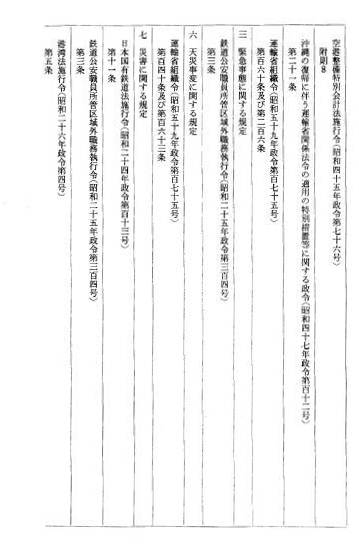 空港整備特別会計法施行令(昭和四十五年政令第七十六号)
附則8
沖縄の復帰に伴う運輸省関係法令の適用の特別措置等に関する政令(昭和四十七年政令第百十二号)
第二十一条
運輸省組織令(昭和五十九年政令第百七十五号)
第百六十条及び第二百六条
三 緊急事態に関する規定
鉄道公安職員所管区域外職務執行令(昭和二十五年政令第三百四号)
第三条
六 天災事変に関する規定
運輸省組織令(昭和五十九年政令第百七十五号)
第百四十条及び第百六十三条
七 災害に関する規定
日本国有鉄道法施行令(昭和二十四年政令第百十三号)
第十一条
鉄道公安職員所管区域外職務執行令(昭和二十五年政令第三百四号)
第三条
港湾法施行令(昭和二十六年政令第四号)
第五条